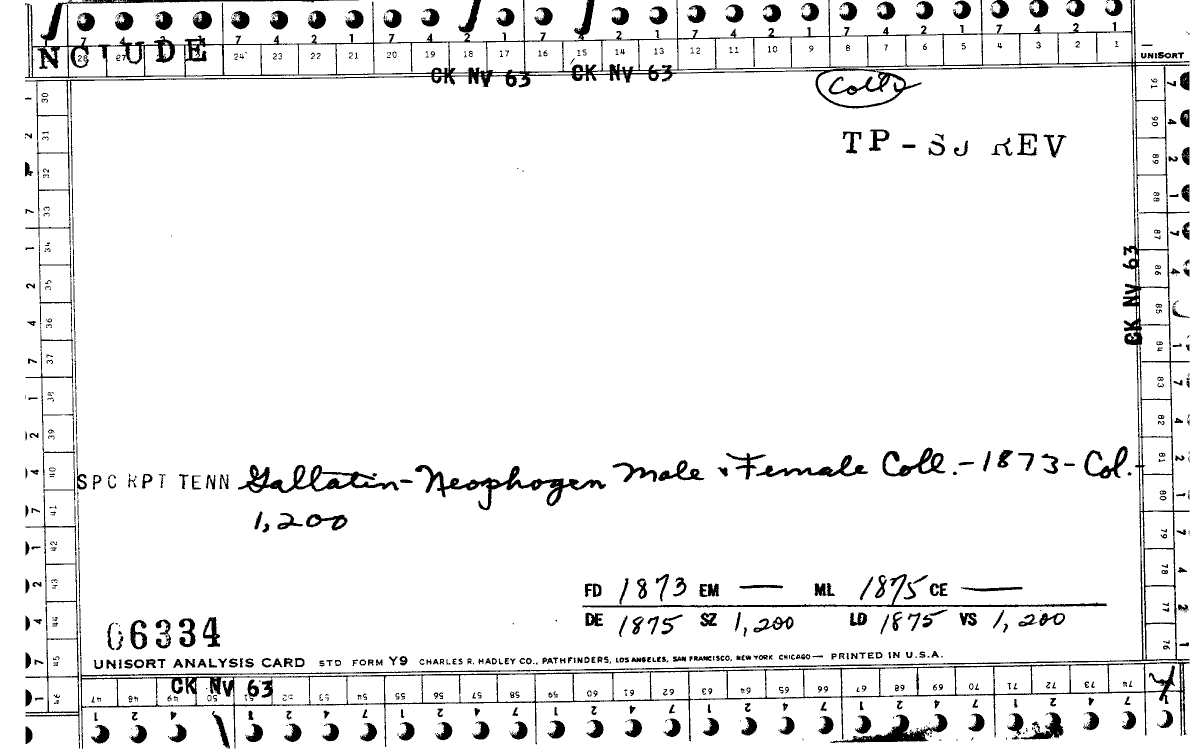 INCLUDE
7 4 2 1 7 4 2 1 7 4 2 1 7 4 2 1 7 4 2 1 7 4 2 1 7 4 2 1
26 27 24 23 22 21 20 19 18 17 16 15 14 13 12 11 10 9 8 7 6 5 4 3 2 1
UNISORT
CK NV 63 CK NV 63
Coll
TP - SJ REV
CK NV 63
30 31 32 33 34 35 36 37 38 39 40 41 42 43 44 45 46
91 90 89 88 87 86 85 84 83 82 81 80 79 78 77 76
SPC RPT TENN Gallatin-Neophogen Male & Female Coll.-1873-Col.-
1,200
FD 1873 EM — ML 1875 CE —
DE 1875 SZ 1,200 LD 1875 VS 1,200
06334
UNISORT ANALYSIS CARD STD FORM Y9 CHARLES R. HADLEY CO., PATHFINDERS, LOS ANGELES, SAN FRANCISCO, NEW YORK CHICAGO — PRINTED IN U.S.A.
CK NV 63
47 48 49 50 51 52 53 54 55 56 57 58 59 60 61 62 63 64 65 66 67 68 69 70 71 72 73 74
1 2 4 1 2 4 7 1 2 4 7 1 2 4 7 1 2 4 7 1 2 4 7 1 2 4 7